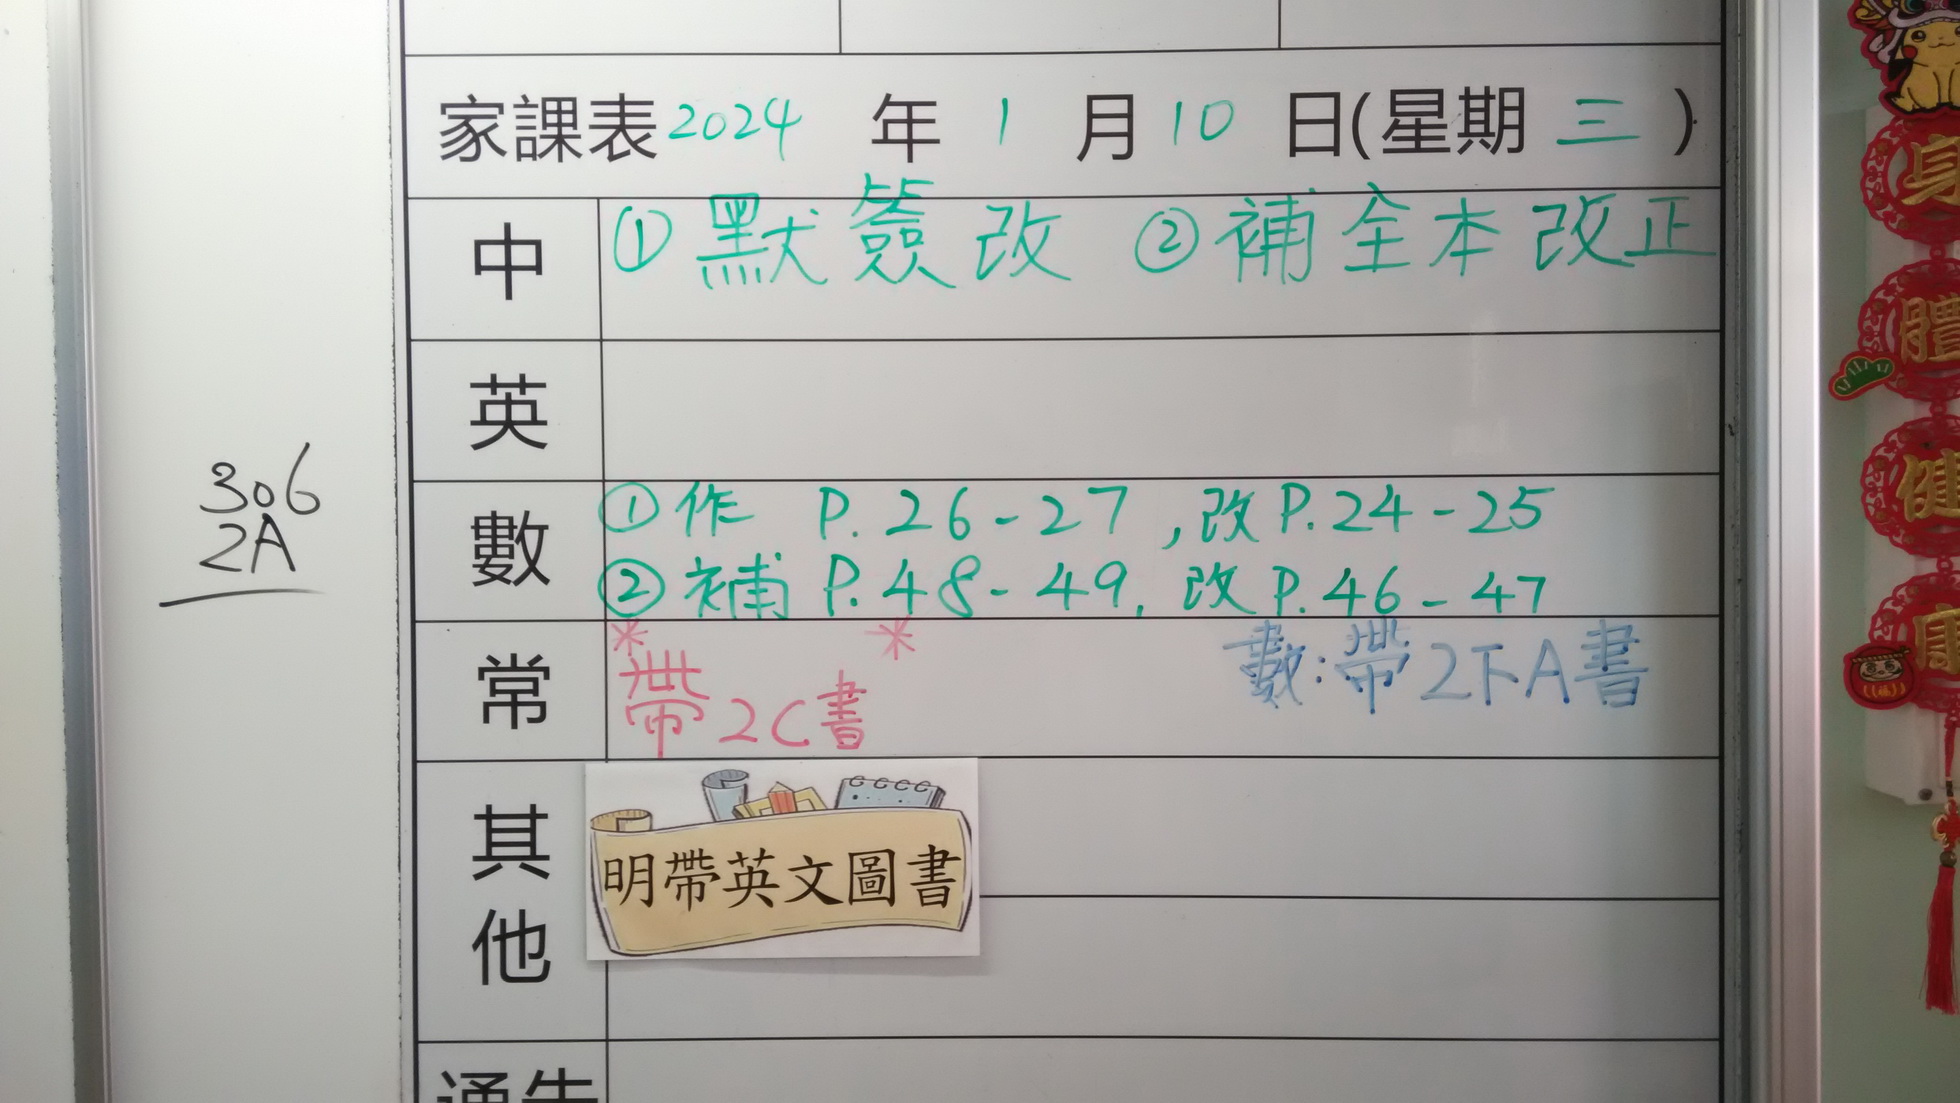 家課表2024年1月10日(星期三)
中 ①默簽改 ②補全本改正
英
數 ①作 P.26-27,改P.24-25
②補 P.48-49,改P.46-47
常 *帶2C書* 數:帶2下A書
其他 明帶英文圖書
通告
306
2A
身
體
健
康